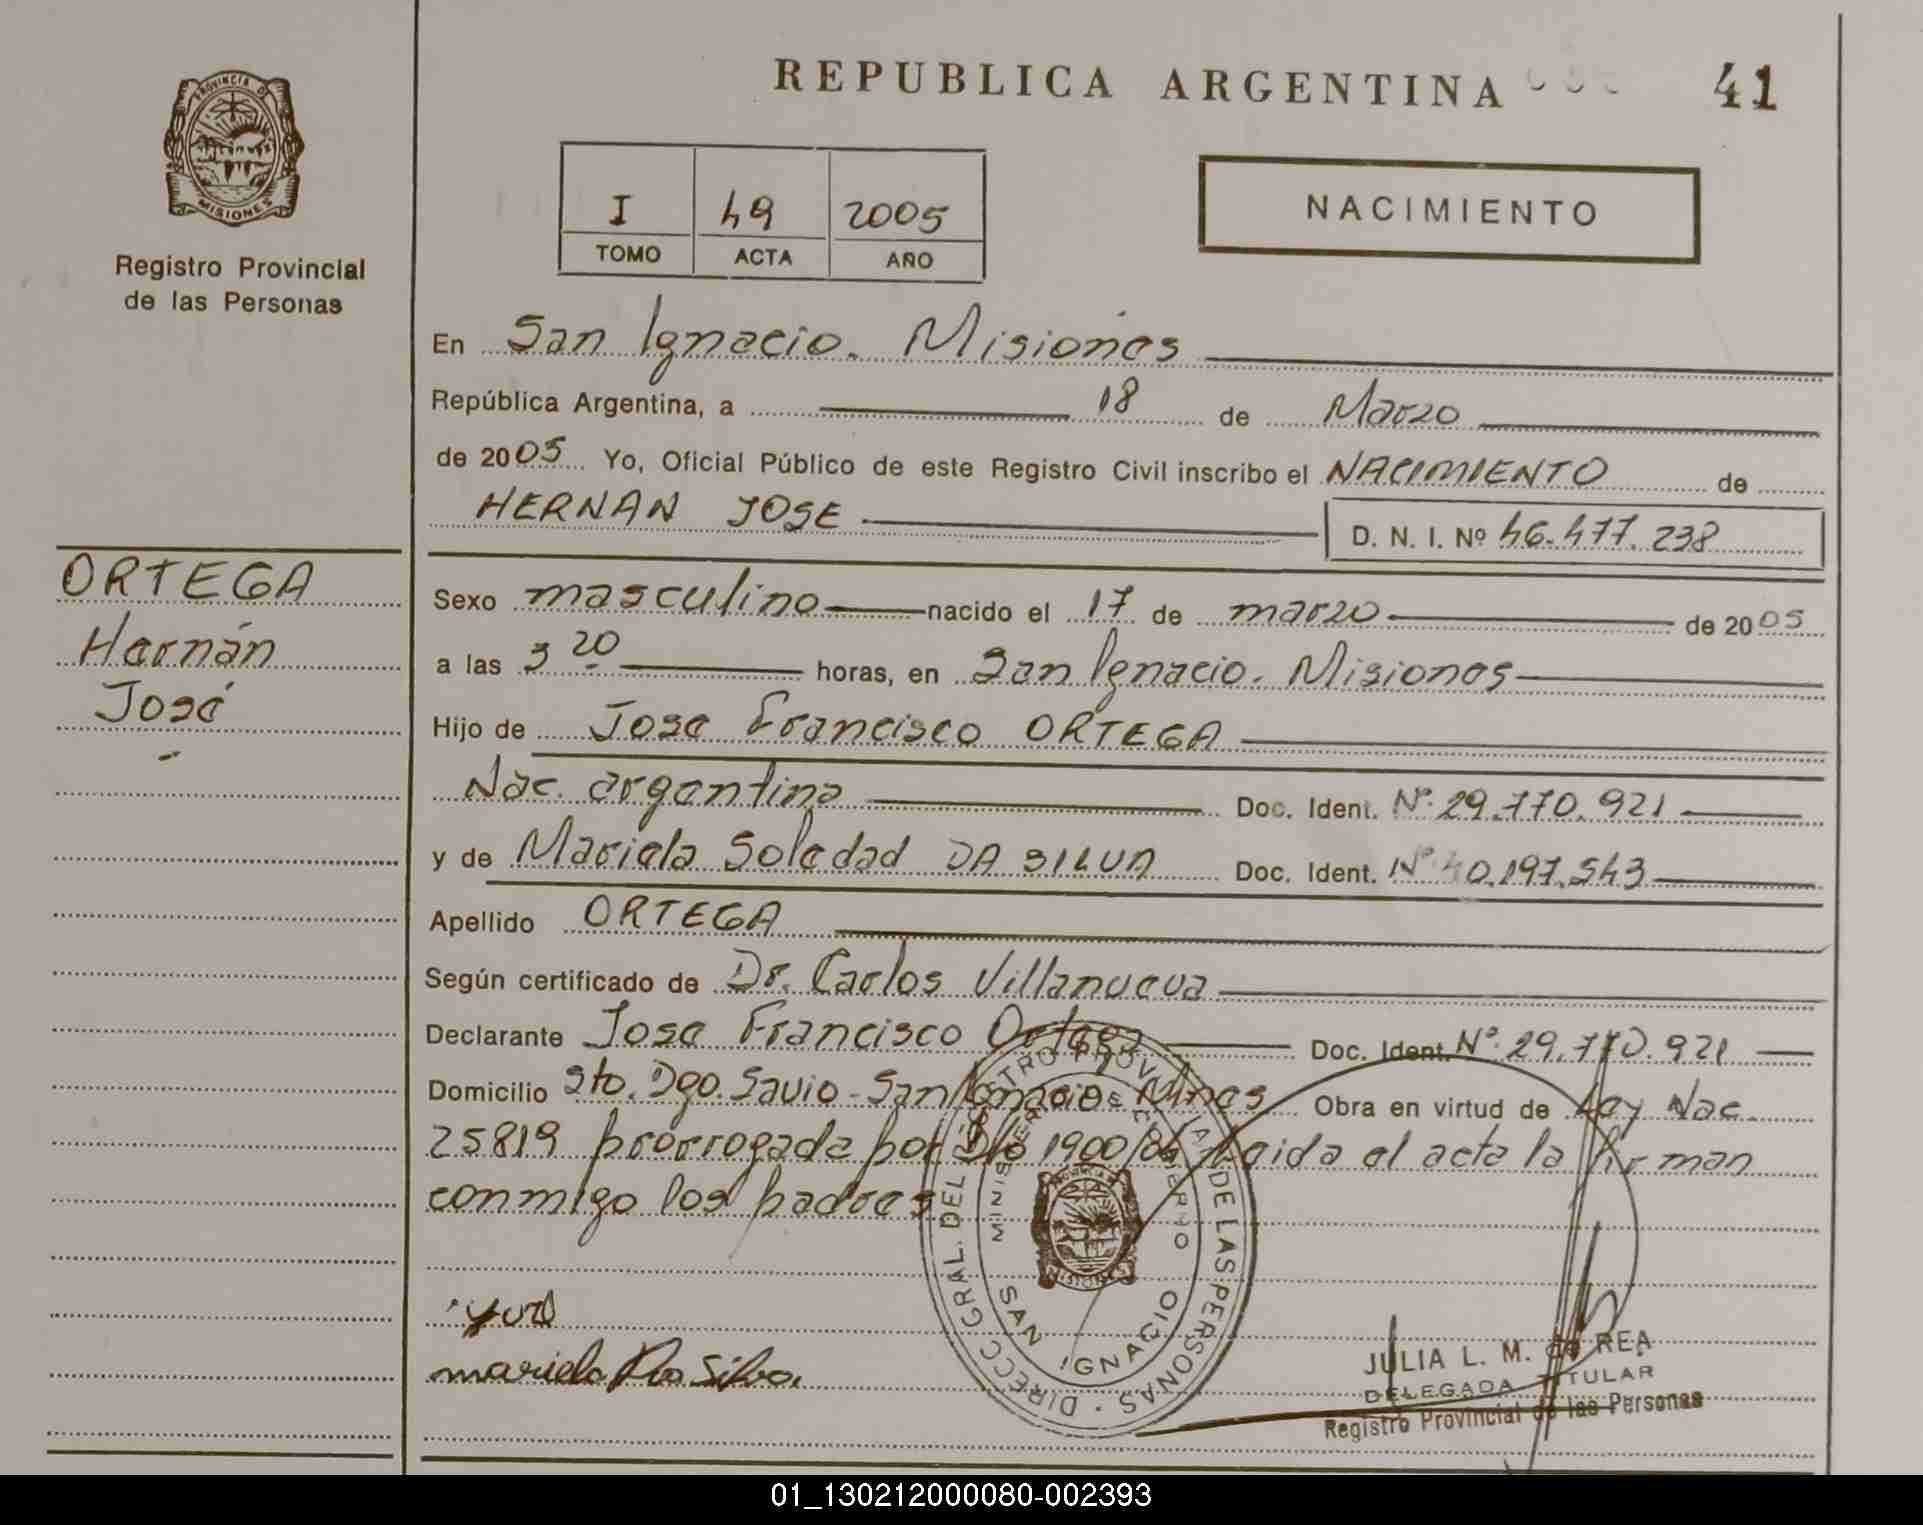 REPUBLICA ARGENTINA
41
PROVINCIA DE
MISIONES
Registro Provincial
de las Personas
I 49 2005
TOMO ACTA AÑO
NACIMIENTO
En San Ignacio. Misiones
República Argentina, a 18 de Marzo
de 2005 Yo, Oficial Público de este Registro Civil inscribo el NACIMIENTO de
HERNAN JOSE D. N. I. Nº 46.477.238
ORTEGA
Hernán
José
Sexo masculino nacido el 17 de marzo de 2005
a las 3 20 horas, en San Ignacio. Misiones
Hijo de Jose Francisco ORTEGA
Nac. argentina Doc. Ident. Nº 29.770.921
y de Mariela Soledad DA SILVA Doc. Ident. Nº 40.197.543
Apellido ORTEGA
Según certificado de Dr. Carlos Villanueva
Declarante Jose Francisco Ortega Doc. Ident. Nº 29.770.921
Domicilio Sto. Dgo. Savio - San Ignacio Mnes Obra en virtud de Ley Nac.
25819 prorrogada por Dto 1900/04 Leida el acta la firman
conmigo los padres
DIRECC. GRAL. DEL REGISTRO PROVINCIAL DE LAS PERSONAS
MINISTERIO DE GOBIERNO
SAN IGNACIO
MISIONES
mariela Da Silva.
JULIA L. M. de REA
DELEGADA TITULAR
Registro Provincial de las Personas
01_130212000080-002393